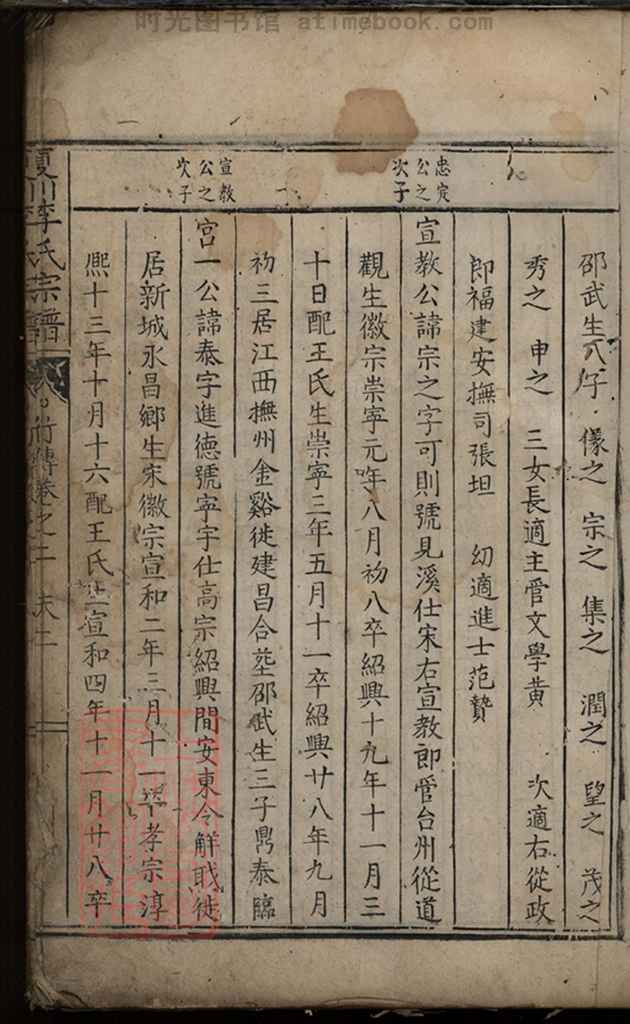 时光图书馆 atimebook.com
忠定
公之
次子
宣教
公之
次子
邵武生八子 儀之 宗之 集之 潤之 望之 茂之
秀之 申之 三女長適主管文學黄 次適右從政
郎福建安撫司張坦 幼適進士范贄
宣教公諱宗之字可則號見溪仕宋右宣教郎管台州從道
觀生徽宗崇寧元年八月初八卒紹興十九年十一月三
十日配王氏生崇寧三年五月十一卒紹興廿八年九月
初三居江西撫州金谿徙建昌合塟邵武生三子鼎泰臨
宫一公諱泰字進德號寧宇仕高宗紹興間安東令解戢徙
居新城永昌鄉生宋徽宗宣和二年三月十一卒孝宗淳
熈十三年十月十六配王氏生宣和四年十一月廿八卒
夏川李氏宗譜
行傳卷之二